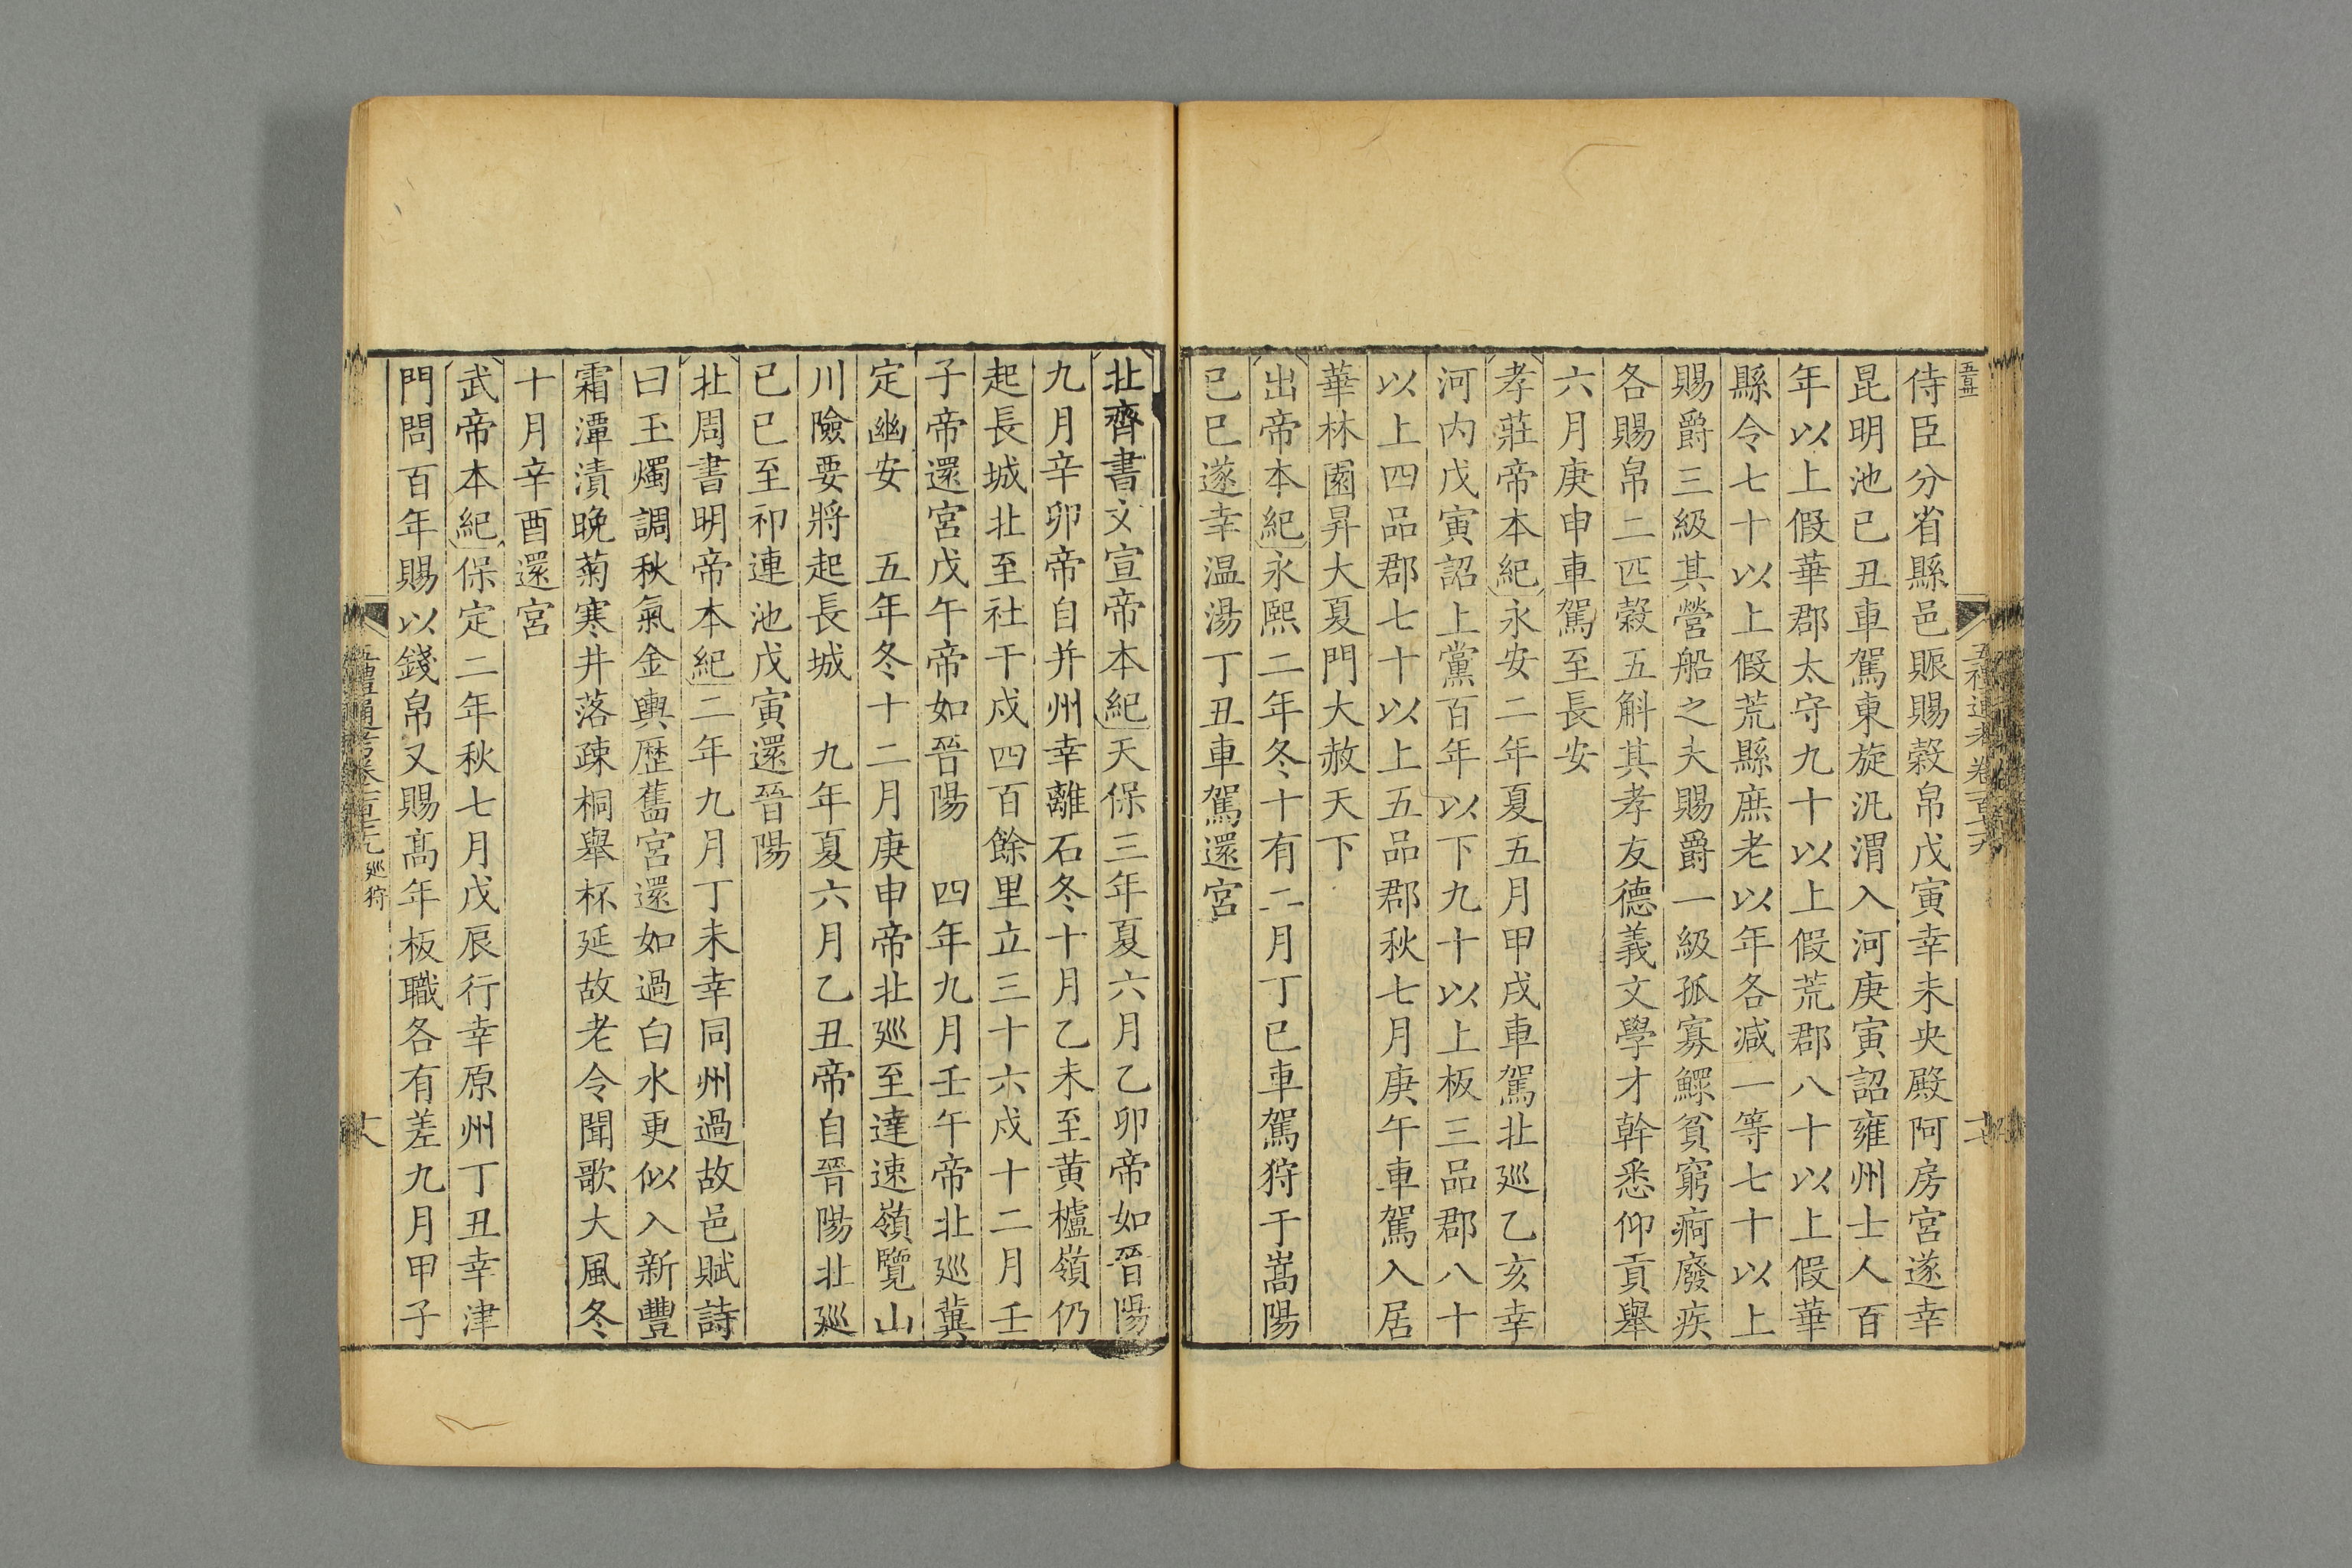 侍臣分省縣邑賑賜穀帛戊寅幸未央殿阿房宮遂幸
昆明池己丑車駕東旋汎渭入河庚寅詔雍州士人百
年以上假華郡太守九十以上假荒郡八十以上假華
縣令七十以上假荒縣庶老以年各减一等七十以上
賜爵三級其營船之夫賜爵一級孤寡鰥貧窮痾廢疾
各賜帛二匹穀五斛其孝友德義文學才幹悉仰貢舉
六月庚申車駕至長安
孝莊帝本紀永安二年夏五月甲戌車駕北廵乙亥幸
河内戊寅詔上黨百年以下九十以上板三品郡八十
以上四品郡七十以上五品郡秋七月庚午車駕入居
華林園昇大夏門大赦天下
出帝本紀永熙二年冬十有二月丁巳車駕狩于嵩陽
已巳遂幸温湯丁丑車駕還宮
北齊書文宣帝本紀天保三年夏六月乙卯帝如晉陽
九月辛卯帝自并州幸離石冬十月乙未至黄櫨嶺仍
起長城北至社干戍四百餘里立三十六戍十二月壬
子帝還宮戊午帝如晉陽　四年九月壬午帝北廵冀
定幽安　五年冬十二月庚申帝北廵至達速嶺覽山
川險要將起長城　九年夏六月乙丑帝自晉陽北廵
已巳至祁連池戊寅還晉陽
北周書明帝本紀二年九月丁未幸同州過故邑賦詩
曰玉燭調秋氣金輿歷舊宮還如過白水更似入新豐
霜潭漬晚菊寒井落疎桐舉杯延故老令聞歌大風冬
十月辛酉還宮
武帝本紀保定二年秋七月戊辰行幸原州丁丑幸津
門問百年賜以錢帛又賜高年板職各有差九月甲子
廵狩